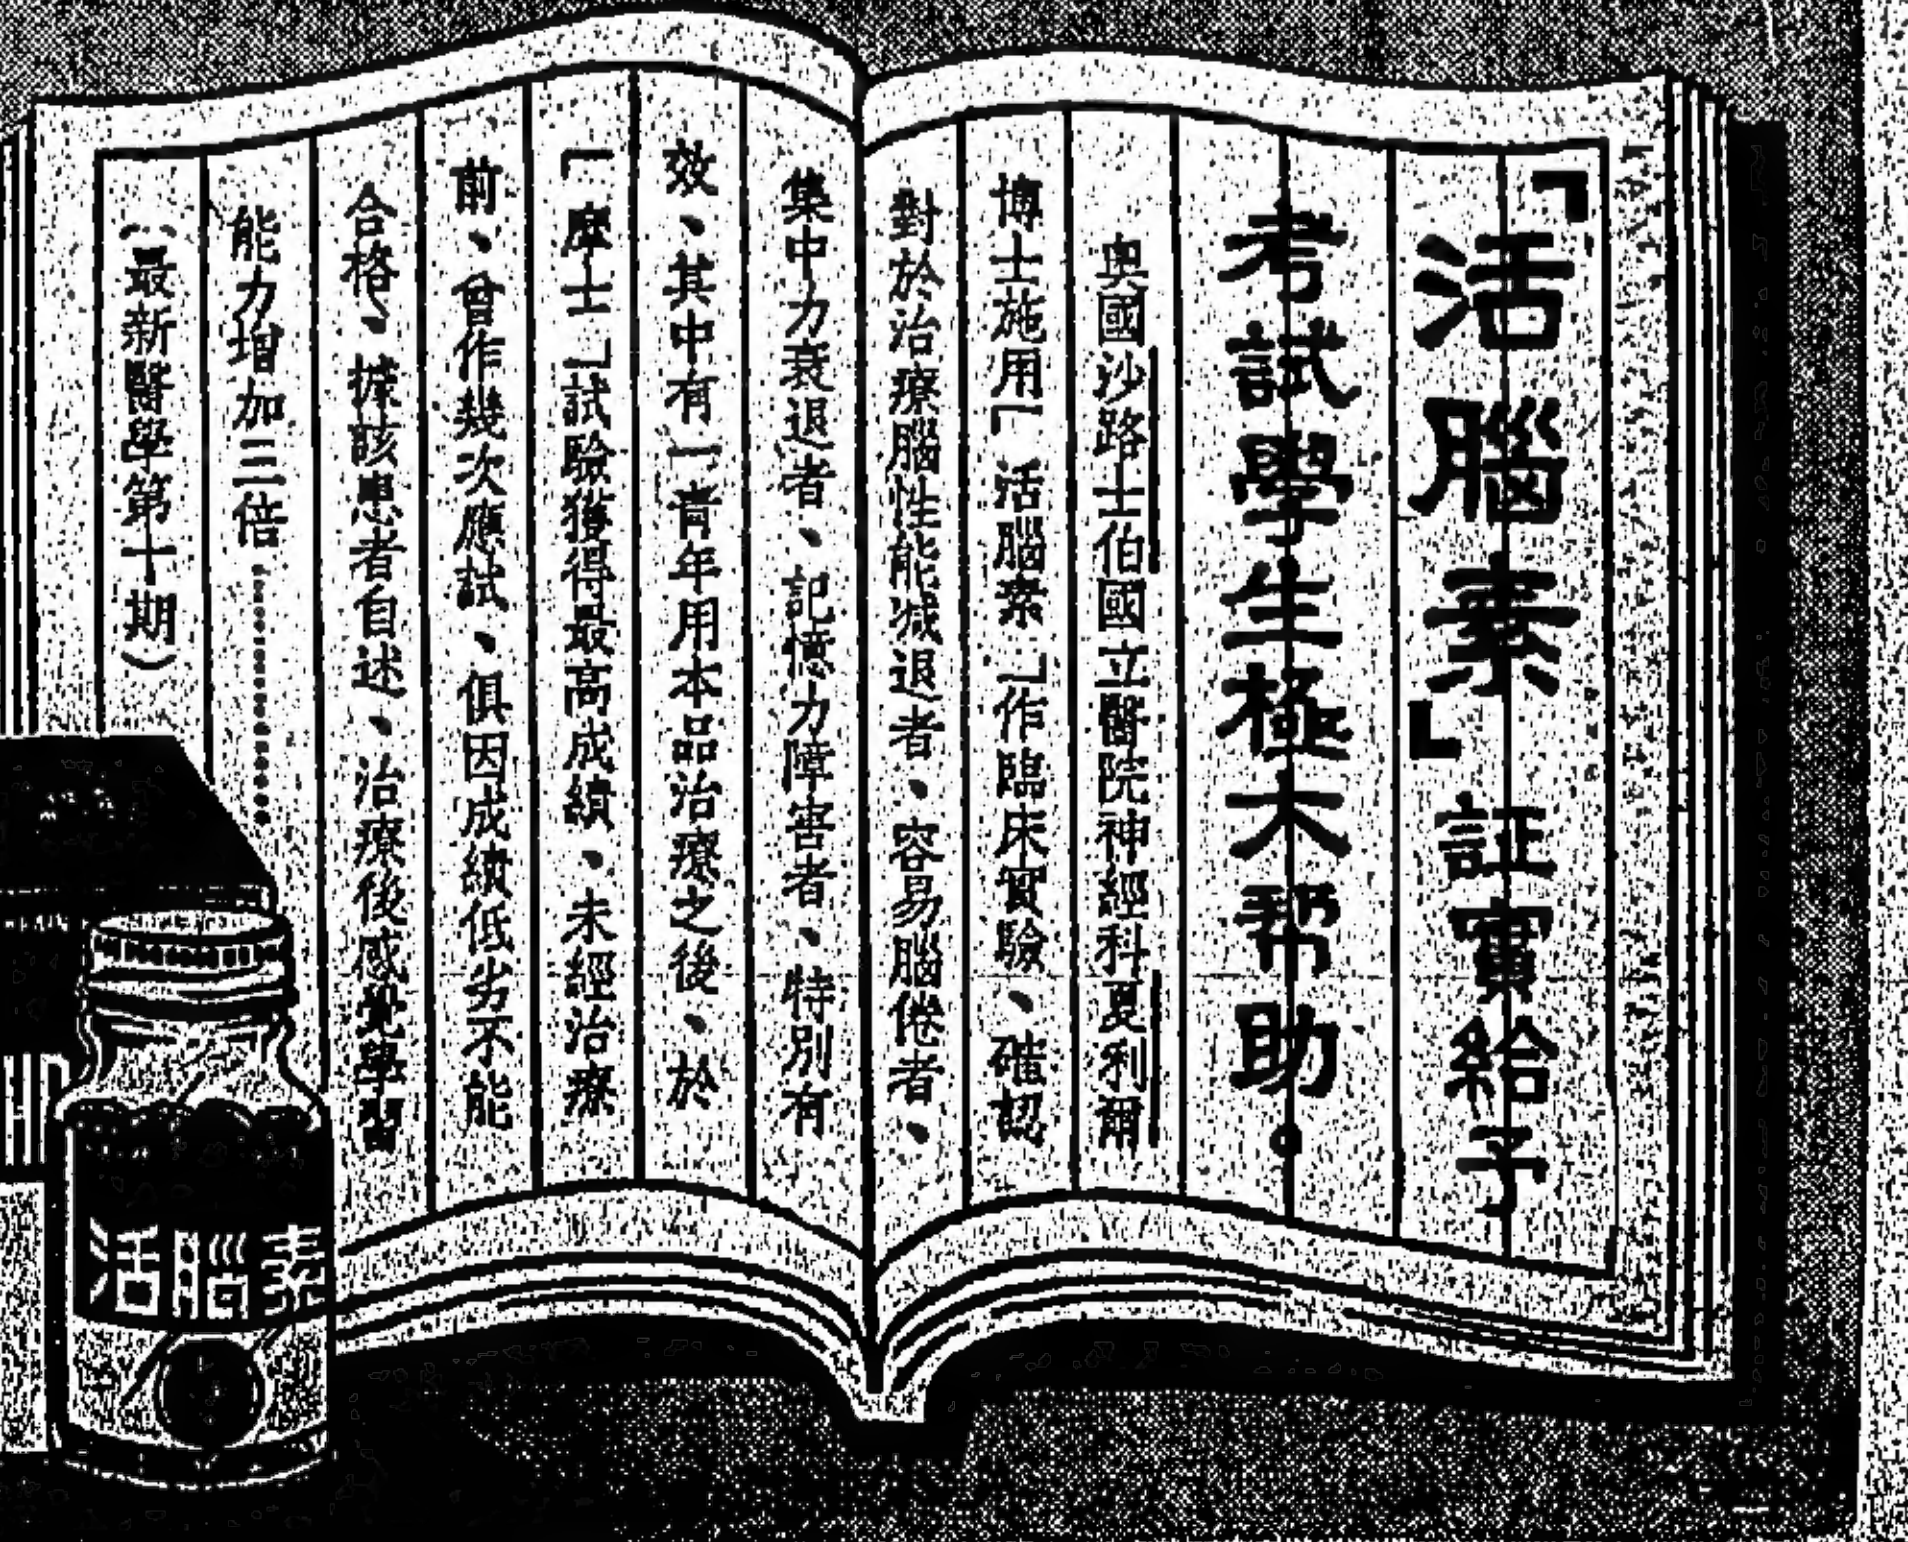 「活腦素」証實給予
考試學生極大帮助。
奧國沙路士伯國立醫院神經科夏利爾
博士施用「活腦素」作臨床實驗、確認
對於治療腦性能減退者、容易腦倦者、
集中力衰退者、記憶力障害者、特別有
效、其中有一青年用本品治療之後、於
「摩士」試驗獲得最高成績、未經治療
前、曾作幾次應試、俱因成績低劣不能
合格、據該患者自述、治療後感覺學習
能力增加三倍…………
(最新醫學第十期)
活腦素